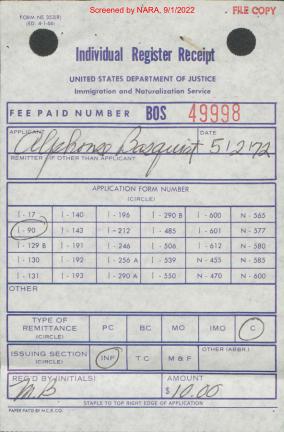 Screened by NARA, 9/1/2022
FORM NE 353(R)
(ED. 4-1-66)
FILE COPY
Individual Register Receipt
UNITED STATES DEPARTMENT OF JUSTICE
Immigration and Naturalization Service
FEE PAID NUMBER BOS 49998
APPLICANT DATE
Alphonso Basquist 5 12 72
REMITTER (IF OTHER THAN APPLICANT)
APPLICATION FORM NUMBER
(CIRCLE)
I - 17 I - 140 I - 196 I - 290 B I - 600 N - 565
I - 90 I - 143 I - 212 I - 485 I - 601 N - 577
I - 129 B I - 191 I - 246 I - 506 I - 612 N - 580
I - 130 I - 192 I - 256 A I - 539 N - 455 N - 585
I - 131 I - 193 I - 290 A I - 550 N - 470 N - 600
OTHER
TYPE OF REMITTANCE (CIRCLE) PC BC MO IMO C
ISSUING SECTION (CIRCLE) INF T C M & F OTHER (ABBR.)
REC'D BY (INITIALS) AMOUNT
M.B $10.00
STAPLE TO TOP RIGHT EDGE OF APPLICATION